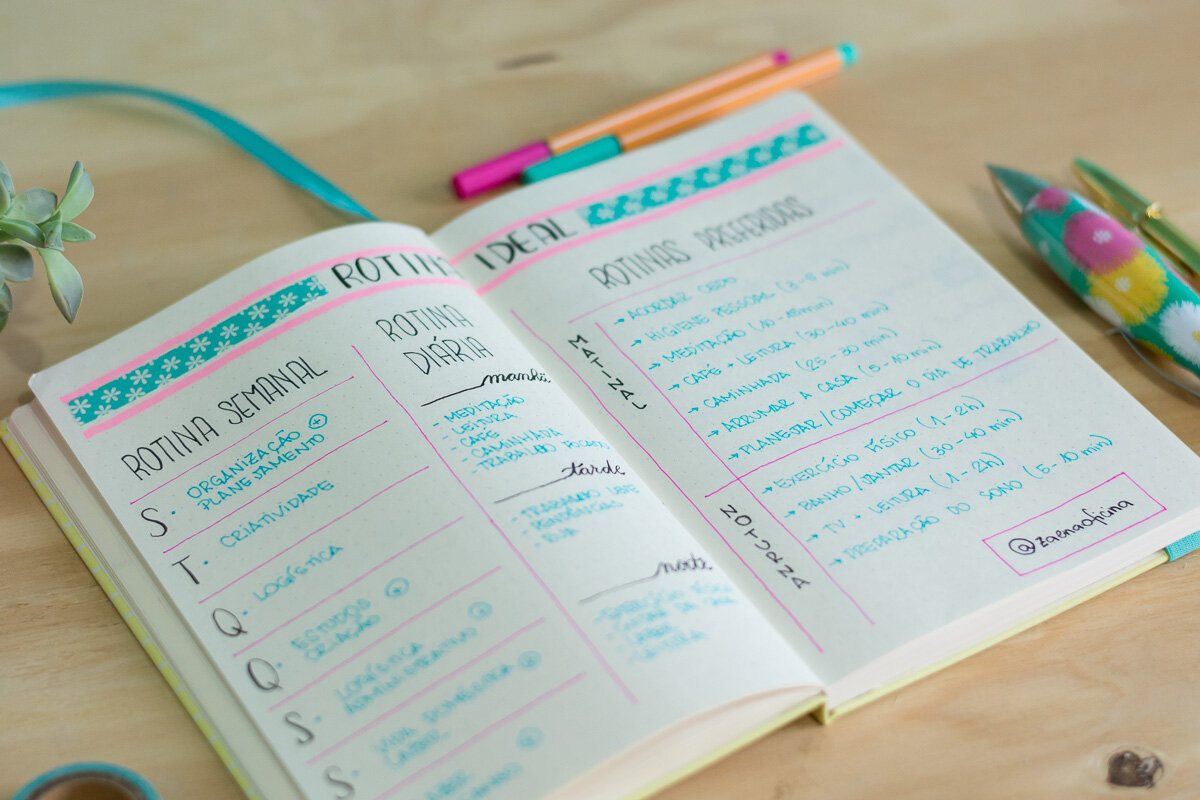 ROTINA IDEAL
ROTINA SEMANAL
S • ORGANIZAÇÃO +
PLANEJAMENTO
T • CRIATIVIDADE
Q • LOGÍSTICA
Q • ESTUDOS +
CRIAÇÃO
S • LOGÍSTICA +
ADMINISTRATIVO
S • VIDA DOMÉSTICA +
ROTINA
DIÁRIA
manhã
- MEDITAÇÃO
- LEITURA
- CAFÉ
- CAMINHADA
- TRABALHO FOCADO
tarde
- TRABALHO LEVE
- PENDÊNCIAS
- RUA
noite
- EXERCÍCIO FÍSICO
ROTINAS PREFERIDAS
MATINAL
→ ACORDAR CEDO
→ HIGIENE PESSOAL
→ MEDITAÇÃO (10-15min)
→ CAFÉ + LEITURA (30-40 min)
→ CAMINHADA (25-30 min)
→ ARRUMAR A CASA (5-10 min)
→ PLANEJAR/COMEÇAR O DIA DE TRABALHO
NOTURNA
→ EXERCÍCIO FÍSICO (1-2h)
→ BANHO/JANTAR (30-40 min)
→ TV + LEITURA (1-2h)
→ PREPARAÇÃO DO SONO (5-10 min)
@zaenaoficina